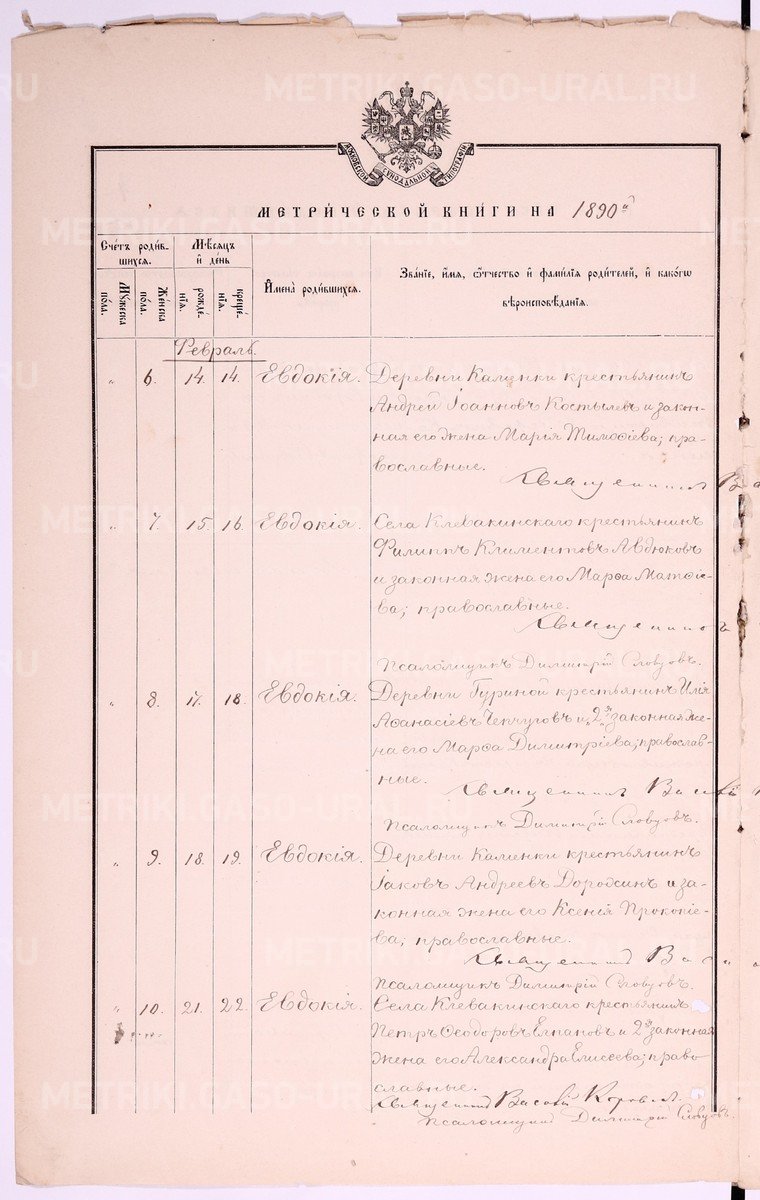 МОСКОВСКОЙ СѴНОДАЛЬНОЙ ТИПОГРАФІИ
МЕТРИ́ЧЕСКОЙ КНИ́ГИ НА 1890й
Сче́тъ роди́в-
шихся.
Мѣ́сяцъ
и҆ де́нь
Му́жеска
по́ла.
Же́нска
по́ла.
рожде́-
нїя.
креще́-
нїя.
И҆мена̀ роди́вшихся.
Зва́нїе, и҆́мя, ѻ҆́тчество и҆ фами́лїя роди́телей, и҆ како́гѡ
вѣроисповѣ́данїя.
Февраль.
„ 6. 14. 14. Евдокія. Деревни Каменки крестьянинъ
Андрей Іоанновъ Костылевъ и закон-
ная его жена Марія Тимоѳіева; пра-
вославные.
Священникъ Ва
„ 7. 15. 16. Евдокія. Села Клевакинскаго крестьянинъ
Филиппъ Климентовъ Авдюковъ
и законная жена его Марѳа Матѳіе-
ва; православные.
Священникъ
Псаломщикъ Димитрій Словцовъ.
„ 8. 17. 18. Евдокія. Деревни Гуриной крестьянинъ Илія
Аѳанасіевъ Чепчуговъ и „2я“ законная же-
на его Марѳа Димитріева; православ-
ные.
Священникъ Васи
Псаломщикъ Димитрій Словцовъ.
„ 9. 18. 19. Евдокія. Деревни Каменки крестьянинъ
Іаковъ Андреевъ и за-
конная жена его Ксенія Прокопіе-
ва; православные.
Священникъ Васи
Псаломщикъ Димитрій Словцовъ.
„ 10. 21. 22. Евдокія. Села Клевакинскаго крестьянинъ
Петръ Ѳеодоровъ Елпановъ и 2я законная
жена его Александра Елисеева; право-
славные.
Священникъ Василій
Псаломщикъ Димитрій Словцовъ.
METRIKI.GASO-URAL.RU